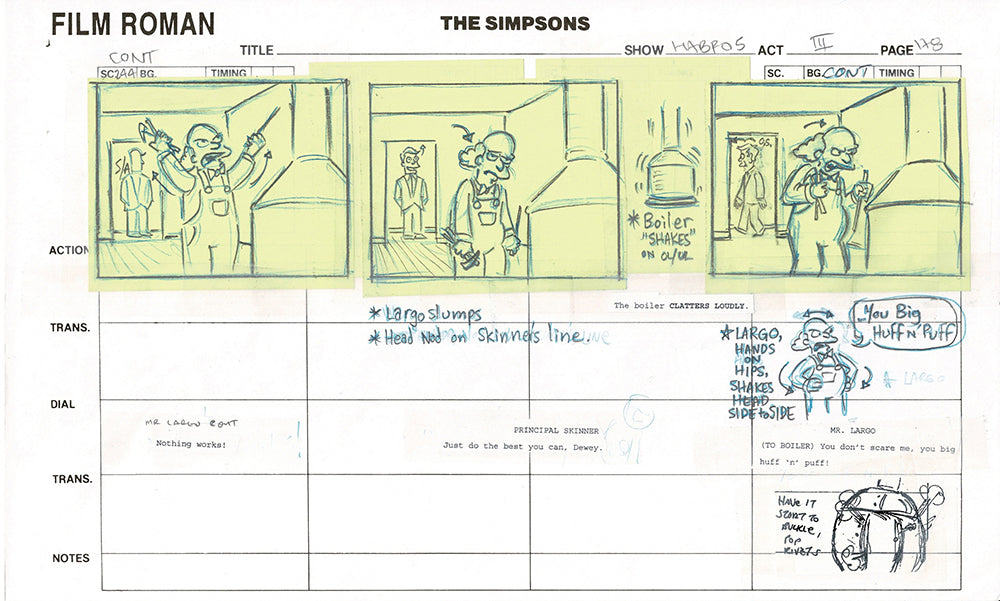 FILM ROMAN
THE SIMPSONS
TITLE
SHOW HABF05
ACT III
PAGE 178
CONT
SC244 BG.
TIMING
SC.
BG. CONT
TIMING
S/A
O.S.
* Boiler
"SHAKES"
ON CL/UR
ACTION
The boiler CLATTERS LOUDLY.
* Largo slumps
* Head Nod on Skinner's line.
TRANS.
* LARGO,
HANDS
ON
HIPS,
SHAKES
HEAD
SIDE to SIDE
You Big
HUFF N' PUFF
* LARGO
DIAL
MR LARGO CONT
Nothing works!
PRINCIPAL SKINNER
Just do the best you can, Dewey.
MR. LARGO
(TO BOILER) You don't scare me, you big
huff 'n' puff!
TRANS.
HAVE IT
START TO
BUCKLE,
POP
RIVETS
NOTES